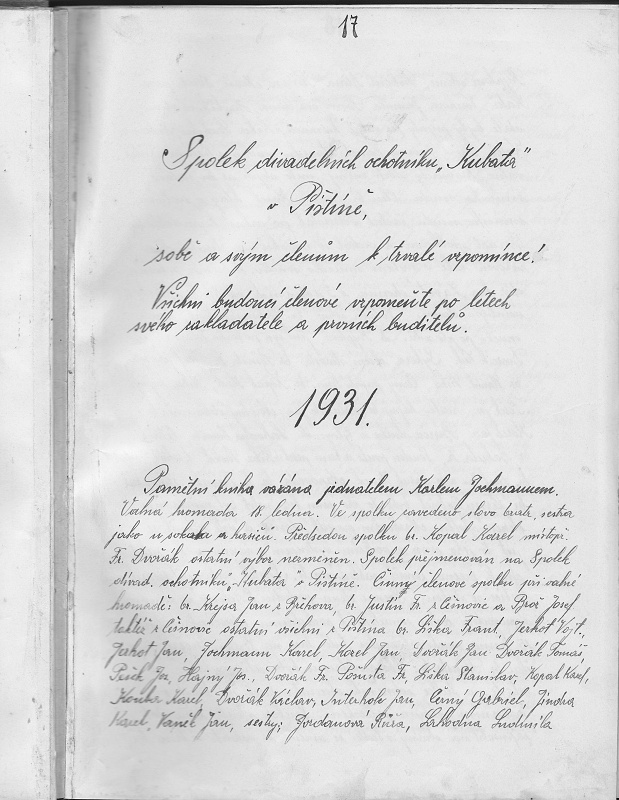 17
Spolek divadelních ochotníků „Kubata"
v Pištíně,
sobě a svým členům k trvalé vzpomínce!
Všichni budoucí členové vzpomeňte po letech
svého zakladatele a prvních buditelů.
1931.
Pamětní kniha vázána jednatelem Karlem Jochmannem.
Valná hromada 18. ledna. Ve spolku zavedeno slovo bratr, sestra
jako u sokola a hasičů. Předsedou spolku br. Kopal Karel místopř.
Fr. Dvořák ostatní výbor nezměněn. Spolek přejmenován na Spolek
divad. ochotníků „Kubata" v Pištíně. Činný členové spolku při valné
hromadě: br. Krejsa Jan z Břehova, br. Justin Fr. z Češnovic a Brož Josef
taktéž z Češnovic ostatní všichni z Pištína br. Liška Frant., Jerhot Vojt.,
Jahot Jan, Jochmann Karel, Korel Jan, Dvořák Jan Dvořák Tomáš
Pešek Jos, Hajný Jos., Dvořák Fr. Fr, Liška Stanislav, Kopal Karel,
Karel, Dvořák Václav, Jan, Černý Gabriel, Jindra
Karel, Vaněk Jan, sestry: Jordanová Růža, Ludmila